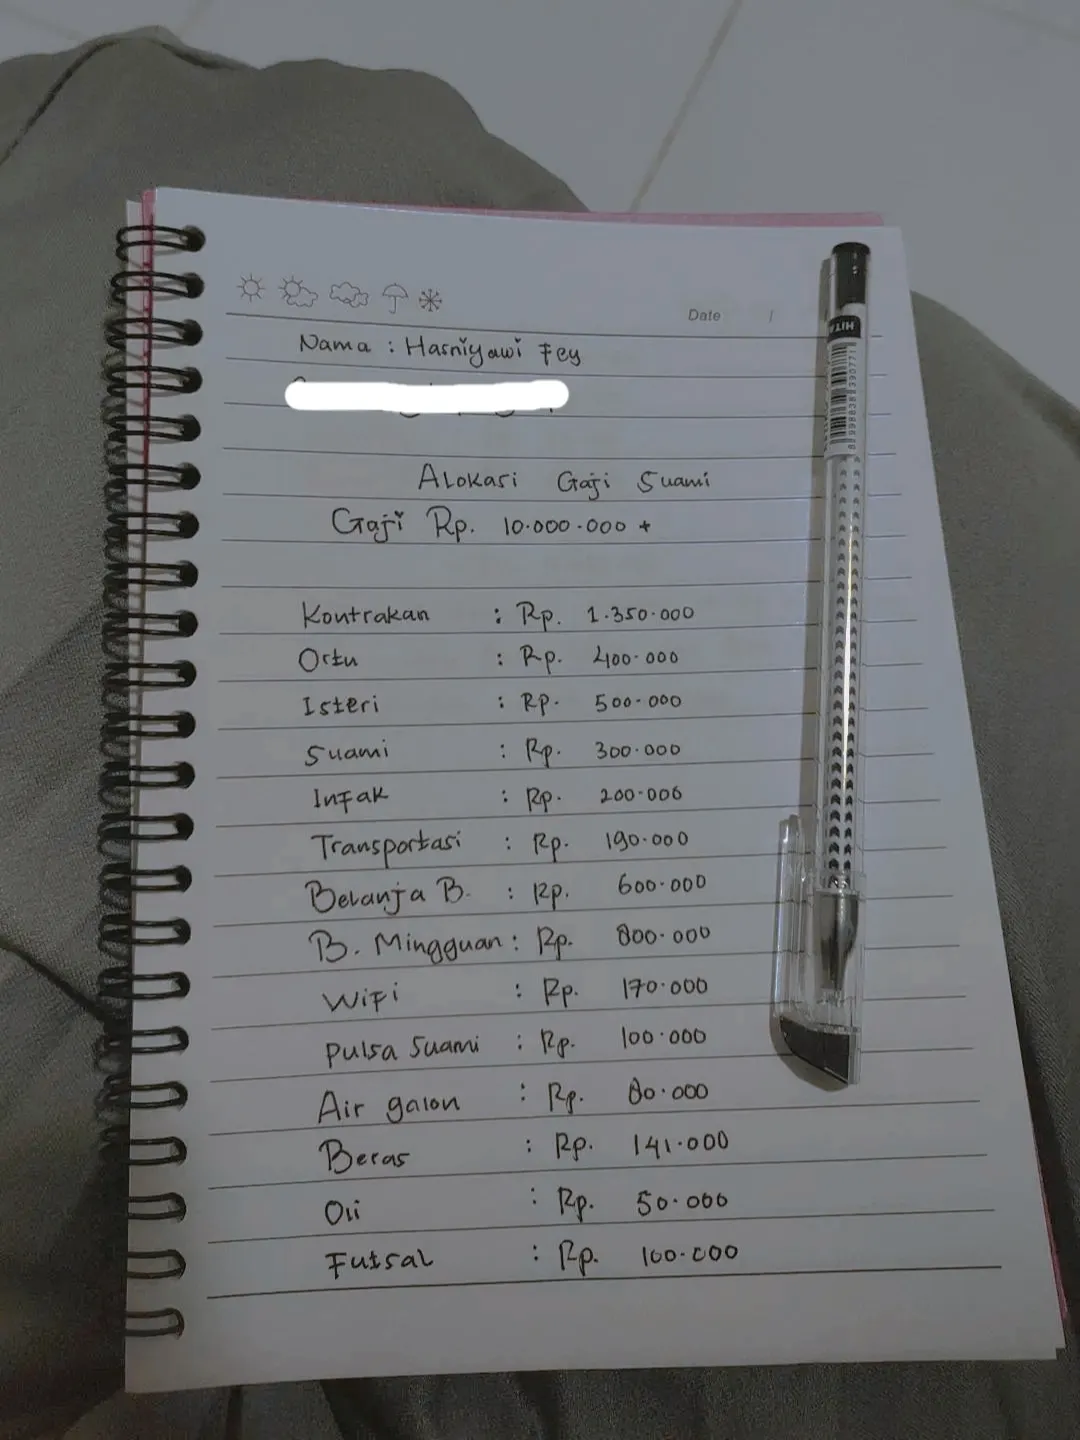 Date / /
HITA
Nama : Hasniyawi Fey
Alokasi Gaji Suami
Gaji Rp. 10.000.000 +
Kontrakan : Rp. 1.350.000
Ortu : Rp. 400.000
Isteri : Rp. 500.000
Suami : Rp. 300.000
Infak : Rp. 200.000
Transportasi : Rp. 190.000
Belanja B. : Rp. 600.000
B. Mingguan : Rp. 800.000
Wifi : Rp. 170.000
Pulsa Suami : Rp. 100.000
Air galon : Rp. 80.000
Beras : Rp. 141.000
Oli : Rp. 50.000
Futsal : Rp. 100.000